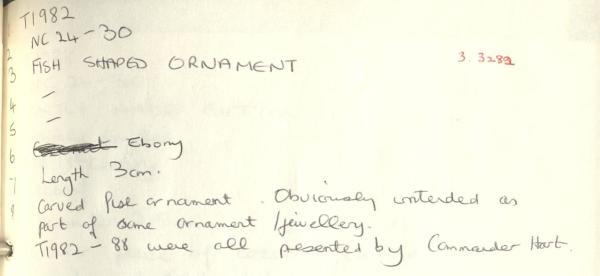 T1982
NC 24-30
2
3 FISH SHAPED ORNAMENT 3.3282
4 -
5 -
6 Ebony
Length 3cm.
7
8 Carved fish ornament. Obviously intended as
part of some ornament/jewellery.
T1982-88 were all presented by Commander Hart.